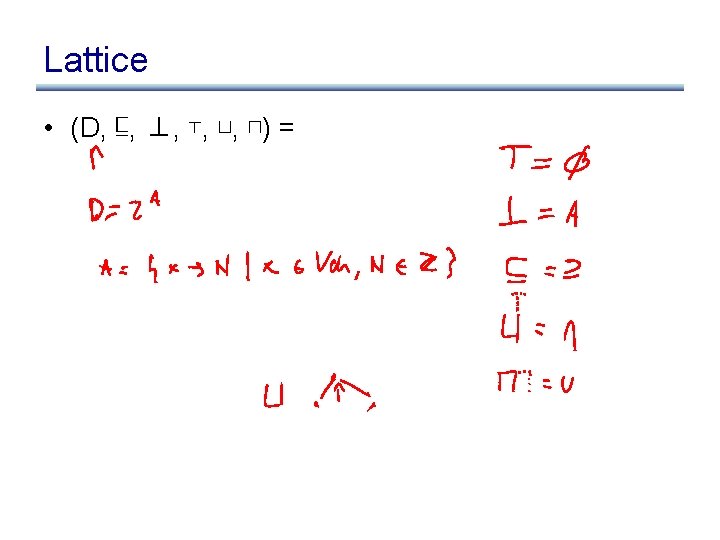 Lattice
• (D, ⊑, ⊥, ⊤, ⊔, ⊓) =
D = 2^A
A = { x → N | x ∈ Vars, N ∈ Z }
⊤ = ∅
⊥ = A
⊑ = ⊇
⊔ = ∩
⊓ = ∪
⊔